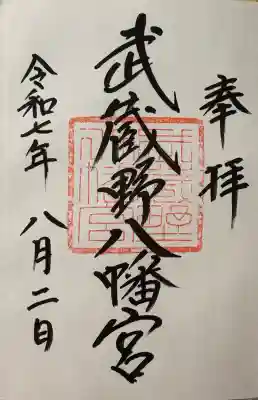 奉拝
武蔵野八幡宮
令和七年 八月二日